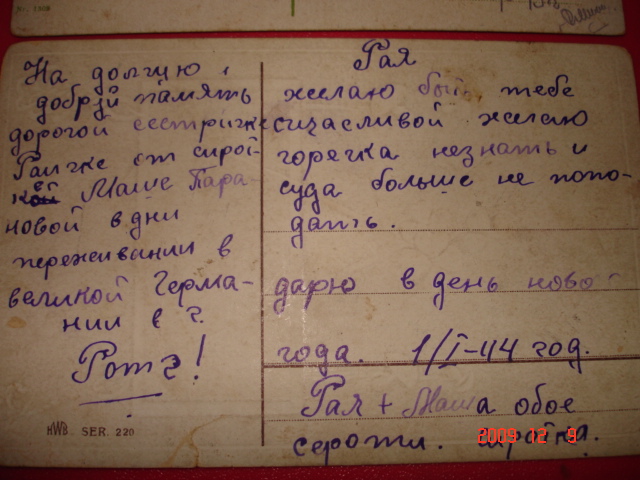 На долгую,
добруй память
дорогой сестричке
Раичке от
Маше Тара-
новой в дни
переживании в
великой Герма-
нии в г.
Ротг!
HWB. SER. 220
Рая
желаю быть тебе
счасливой желаю
горечка незнать и
суда больше не попо-
дать.
дарю в день новой
года. 1/I-44 год.
Рая + Маша обое
2009 12 9